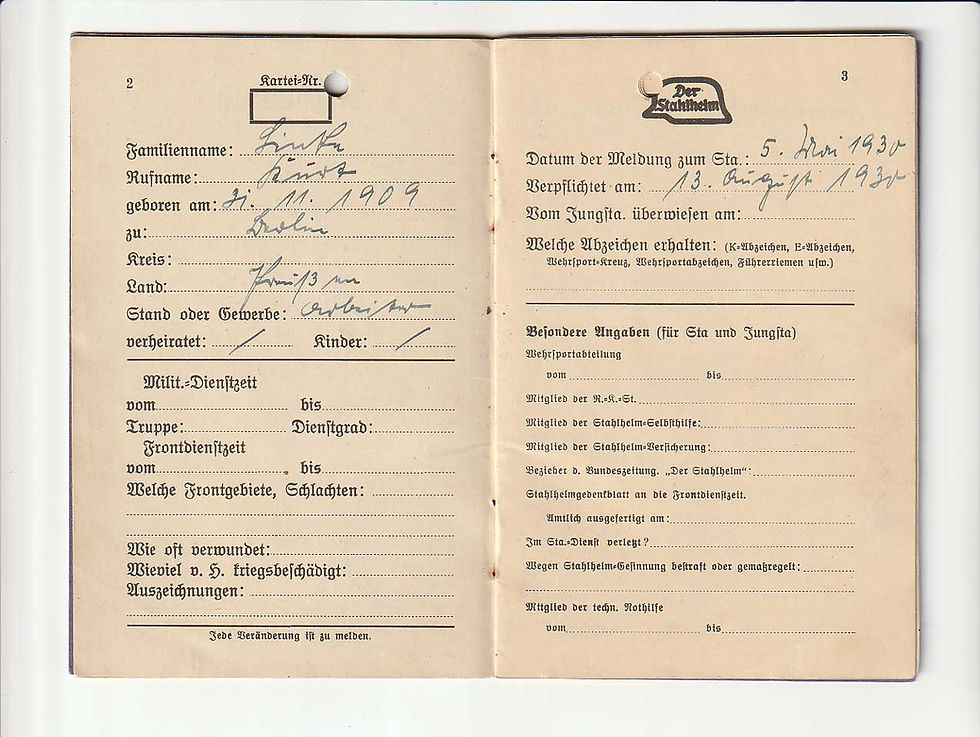 2
Kartei-Nr.
Familienname: Linke
Rufname: Kurt
geboren am: 11. 1909
zu: Berlin
Kreis:
Land: Preußen
Stand oder Gewerbe: Arbeiter
verheiratet: / Kinder: /
Milit.-Dienstzeit
vom bis
Truppe: Dienstgrad:
Frontdienstzeit
vom bis
Welche Frontgebiete, Schlachten:
Wie oft verwundet:
Wieviel v. H. kriegsbeschädigt:
Auszeichnungen:
Jede Veränderung ist zu melden.
3
Der
Stahlhelm
Datum der Meldung zum Sta.: 5. Mai 1930
Verpflichtet am: 13. August 1930
Vom Jungsta. überwiesen am:
Welche Abzeichen erhalten: (K-Abzeichen, E-Abzeichen,
Wehrsport-Kreuz, Wehrsportabzeichen, Führerriemen usw.)
Besondere Angaben (für Sta und Jungsta)
Wehrsportabteilung
vom bis
Mitglied der R.-K.-St.
Mitglied der Stahlhelm-Selbsthilfe:
Mitglied der Stahlhelm-Versicherung:
Bezieher d. Bundeszeitung. „Der Stahlhelm":
Stahlhelmgedenkblatt an die Frontdienstzeit.
Amtlich ausgefertigt am:
Im Sta.-Dienst verletzt?
Wegen Stahlhelm-Gesinnung bestraft oder gemaßregelt:
Mitglied der techn. Nothilfe
vom bis